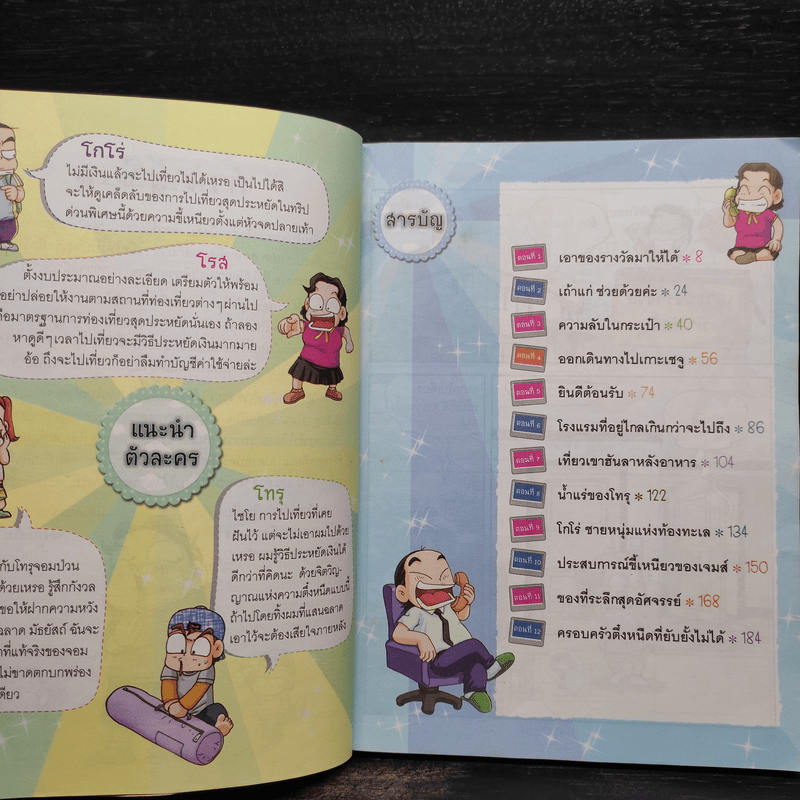 โกโร่
ไม่มีเงินแล้วจะไปเที่ยวไม่ได้เหรอ เป็นไปได้สิ
จะให้ดูเคล็ดลับของการไปเที่ยวสุดประหยัดในทริป
ด่วนพิเศษนี้ด้วยความขี้เหนียวตั้งแต่หัวจดปลายเท้า
โรส
ตั้งงบประมาณอย่างละเอียด เตรียมตัวให้พร้อม
อย่าปล่อยให้งานตามสถานที่ท่องเที่ยวต่างๆผ่านไป
คือมาตรฐานการท่องเที่ยวสุดประหยัดนั่นเอง ถ้าลอง
หาดูดีๆ เวลาไปเที่ยวจะมีวิธีประหยัดเงินมากมาย
อ้อ ถึงจะไปเที่ยวก็อย่าลืมทำบัญชีค่าใช้จ่ายล่ะ
แนะนำ
ตัวละคร
โทรุ
ไชโย การไปเที่ยวที่เคย
ฝันไว้ แต่จะไม่เอาผมไปด้วย
เหรอ ผมรู้วิธีประหยัดเงินได้
ดีกว่าที่คิดนะ ด้วยจิตวิญ-
ญาณแห่งความตึ๋งหนืดแบบนี้
ถ้าไปโดยทิ้งผมที่แสนฉลาด
เอาไว้จะต้องเสียใจภายหลัง
กับโทรุจอมป่วน
ด้วยเหรอ รู้สึกกังวล
ขอให้ฝากความหวัง
ฉลาด มัธยัสถ์ ฉันจะ
าที่แท้จริงของจอม
ไม่ขาดตกบกพร่อง
ดียว
สารบัญ
ตอนที่ 1 เอาของรางวัลมาให้ได้ * 8
ตอนที่ 2 เถ้าแก่ ช่วยด้วยค่ะ * 24
ตอนที่ 3 ความลับในกระเป๋า * 40
ตอนที่ 4 ออกเดินทางไปเกาะเชจู * 56
ตอนที่ 5 ยินดีต้อนรับ * 74
ตอนที่ 6 โรงแรมที่อยู่ไกลเกินกว่าจะไปถึง * 86
ตอนที่ 7 เที่ยวเขาฮันลาหลังอาหาร * 104
ตอนที่ 8 น้ำแร่ของโทรุ * 122
ตอนที่ 9 โกโร่ ชายหนุ่มแห่งท้องทะเล * 134
ตอนที่ 10 ประสบการณ์ขี้เหนียวของเจมส์ * 150
ตอนที่ 11 ของที่ระลึกสุดอัศจรรย์ * 168
ตอนที่ 12 ครอบครัวตึ๋งหนืดที่ยับยั้งไม่ได้ * 184